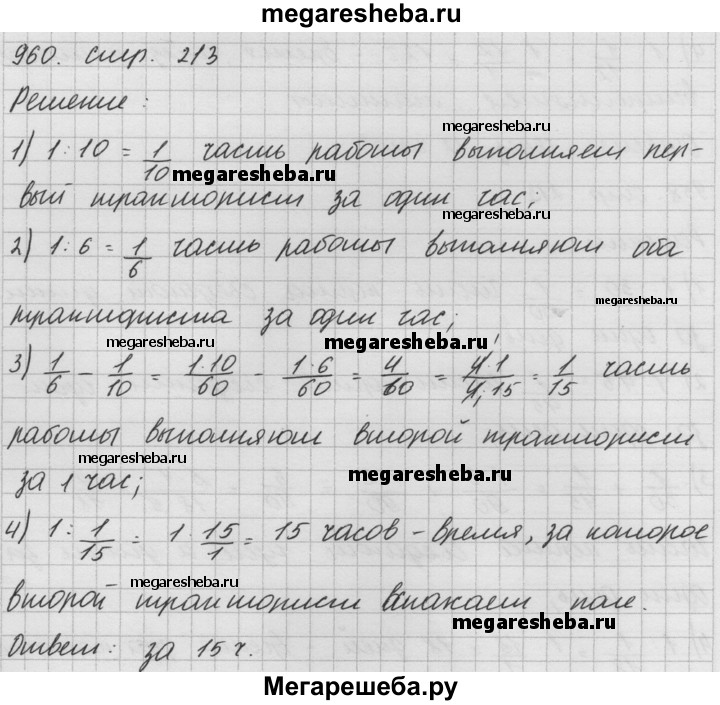 megaresheba.ru
960. стр. 213
Решение:
megaresheba.ru
1) 1:10 = 1/10 часть работы выполняет пер-
megaresheba.ru
вый тракторист за один час;
megaresheba.ru
2) 1:6 = 1/6 часть работы выполняют оба
megaresheba.ru
тракториста за один час;
megaresheba.ru
megaresheba.ru
3) 1/6 - 1/10 = 1·10/60 - 1·6/60 = 4/60 = 4·1/4·15 = 1/15 часть
работы выполняют второй тракторист
megaresheba.ru
за 1 час;
megaresheba.ru
4) 1: 1/15 = 1·15/1 = 15 часов - время, за которое
megaresheba.ru
второй тракторист вспахает поле.
megaresheba.ru
Ответ: за 15 ч.
Мегарешеба.ру